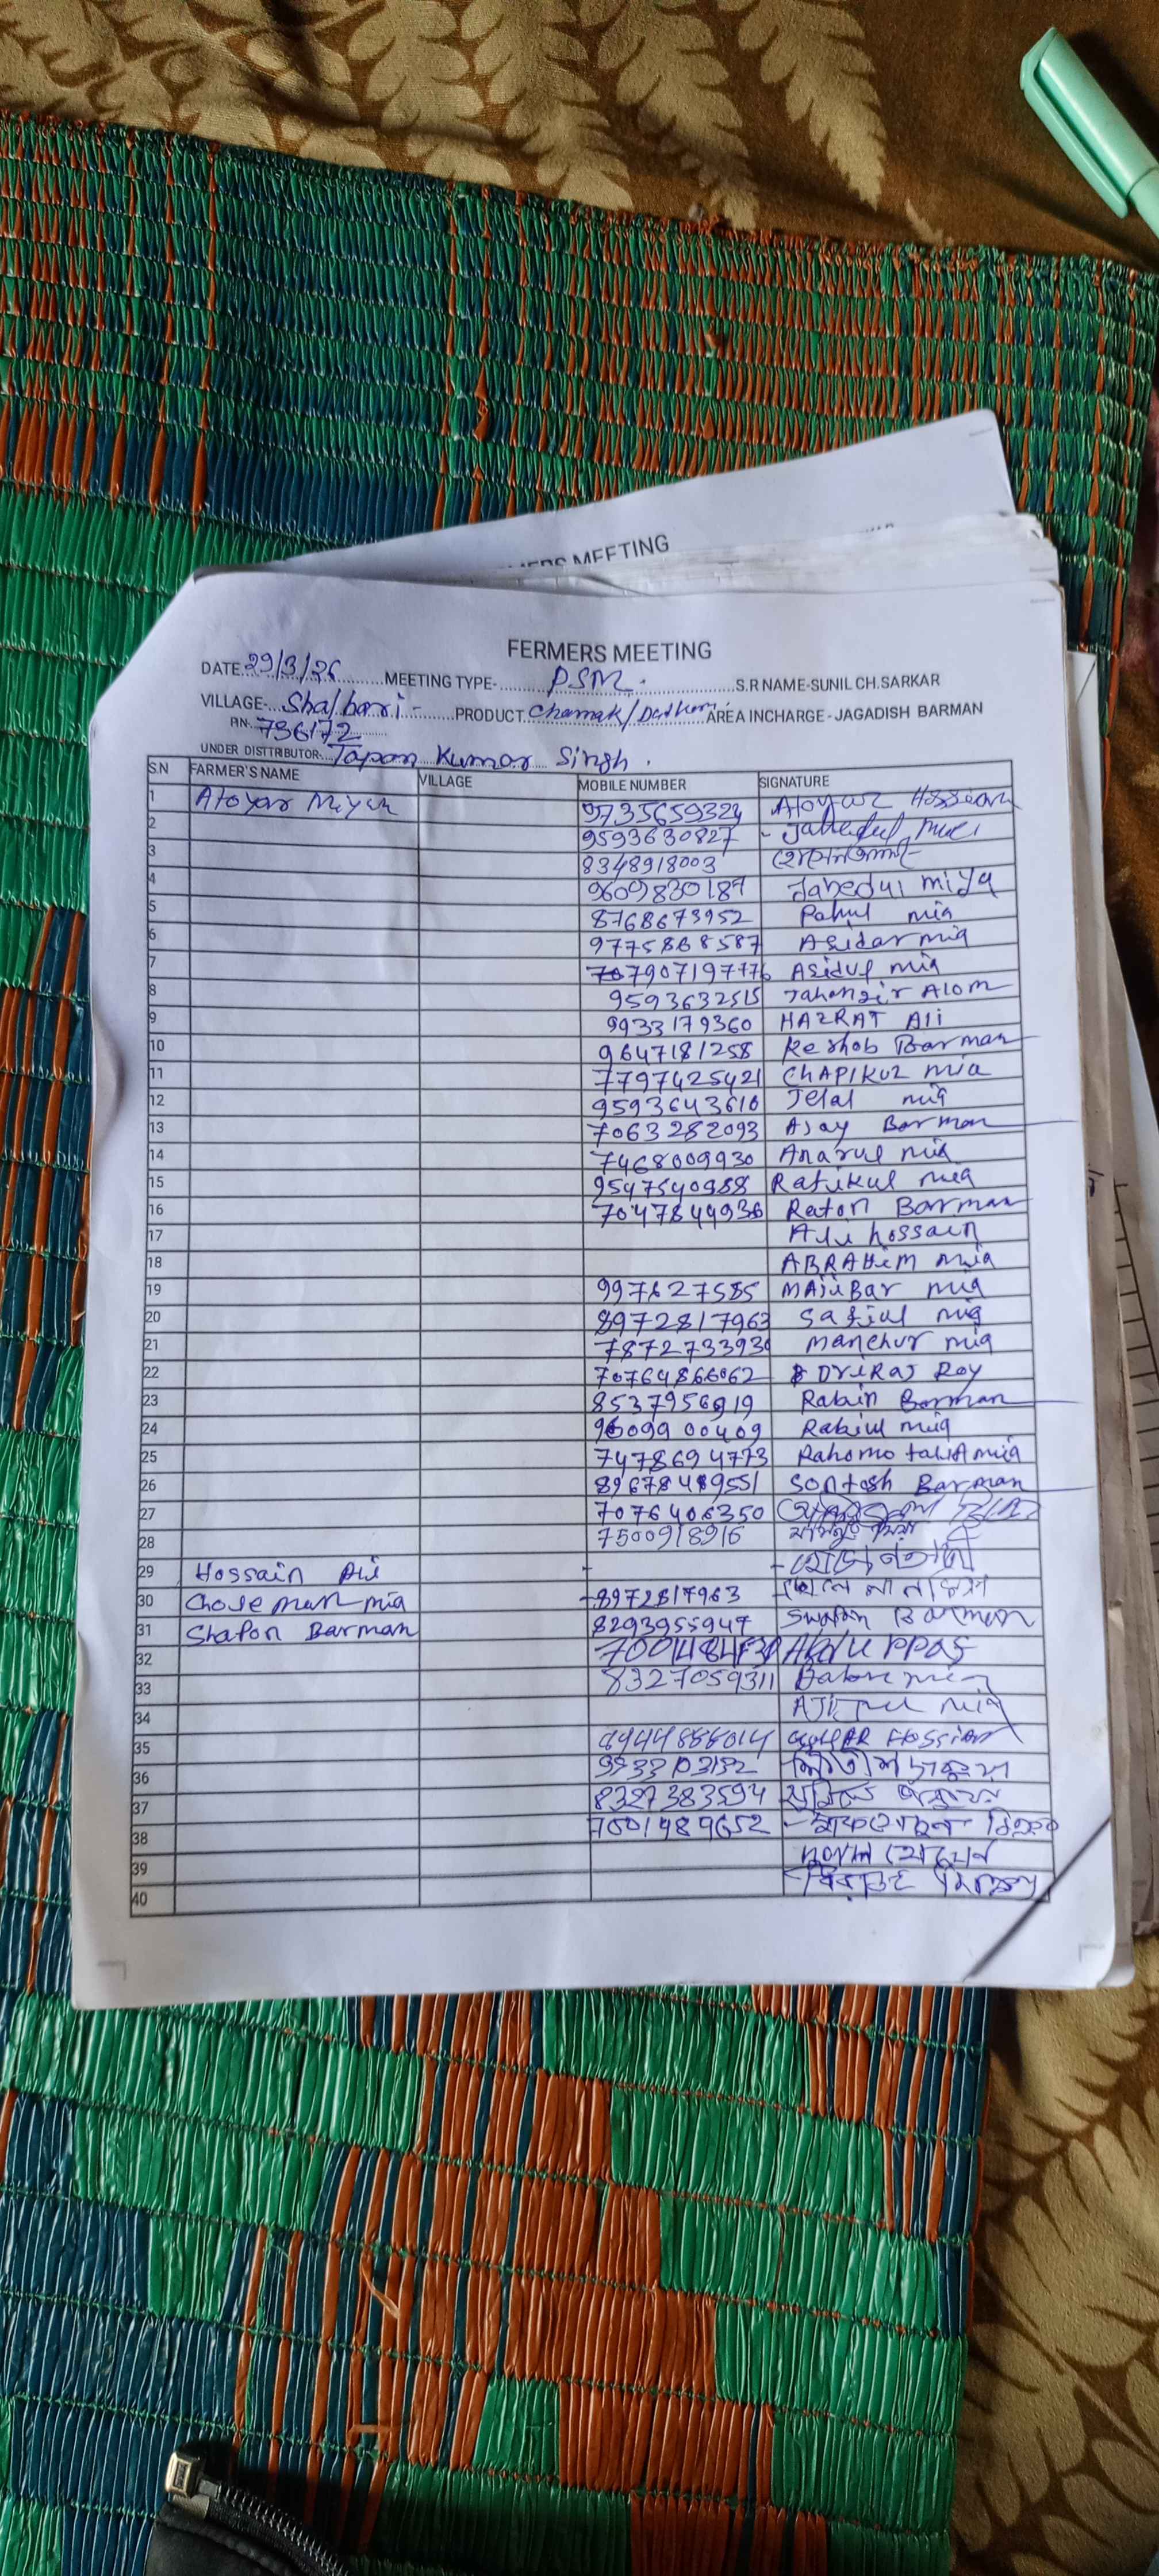 FERMERS MEETING
DATE 29/3/26 MEETING TYPE- PSM. S.R NAME-SUNIL CH.SARKAR
VILLAGE- Shalbari - PRODUCT Chamak/ AREA INCHARGE - JAGADISH BARMAN
PIN- 736172
UNDER DISTTRIBUTOR- Tapan Kumar Singh.
S.N FARMER'S NAME VILLAGE MOBILE NUMBER SIGNATURE
1 Atoyar Miyan 9735659324 Atoyar Hossian
2 9593630827
3 8348918003
4 9609830187 Jahedul miya
5 8768673952 Pahul mia
6 9775868587 Asidar mia
7 Asidul mia
8 9593632515 Jahangir Alom
9 9933179360 HAZRAT Ali
10 9647181258 Keshob Barman
11 7797425421 CHAPIKUL mia
12 9593643610 Jelal mia
13 7063282093 Ajay Barman
14 7468009930 Anarul mia
15 9547540988 Rafikul mia
16 7047844936 Raton Barman
17 Ali hossain
18 ABRAHiM mia
19 997627585 MAjiBar mia
20 8972817963 Safiul mia
21 7872733930 manchur mia
22 70764866062 DriRAJ Roy
23 8537956919 Rabin Barman
24 9609900409 Rabiul mia
25 7478694773 Rahomotali mia
26 89678489551 Sontosh Barman
27 7076406350
28 7500918916
29 Hossain Ali -
30 Choleman mia 8972817963
31 Shapon Barman 8293955947 Swapan Barman
32
33 8327059311
34 mia
35 Hossian
36
37 8327383594
38 7001489652
39
40
MEETING